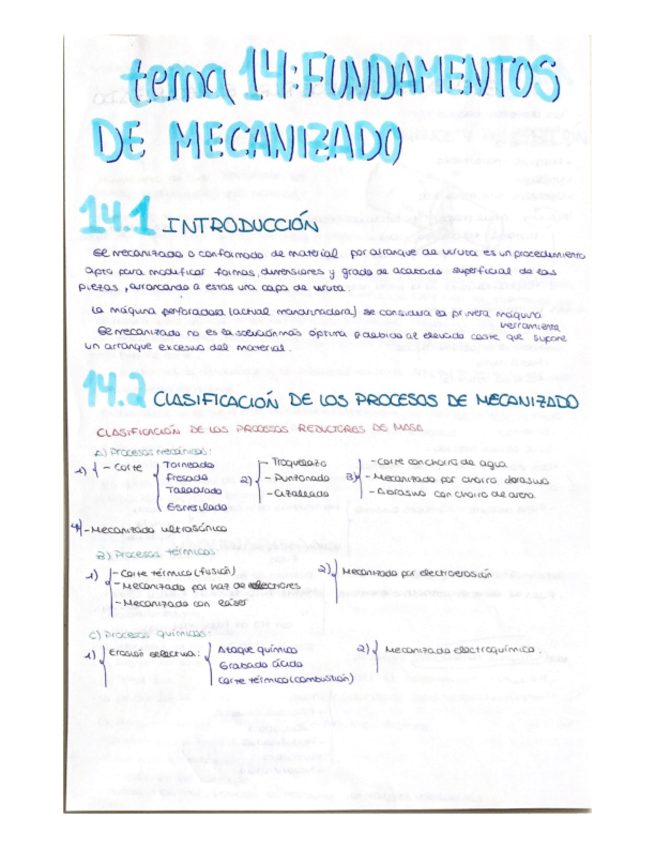 tema 14: FUNDAMENTOS
DE MECANIZADO
14.1 INTRODUCCIÓN
El mecanizado o conformado de material por arranque de viruta es un procedimiento
apto para modificar formas, dimensiones y grado de acabado superficial de las
piezas, arrancando a estas una capa de viruta.
La máquina perforadora (actual mandrinadora) se considera la primera máquina
herramienta
El mecanizado no es la solución más óptima debido al elevado coste que supone
un arranque excesivo del material.
14.2 CLASIFICACIÓN DE LOS PROCESOS DE MECANIZADO
CLASIFICACIÓN DE LOS PROCESOS REDUCTORES DE MASA
A) Procesos mecánicos:
1) - Corte Torneado
Fresado
Taladrado
Esmerilado
2) - Troquelado
- Punzonado
- Cizallado
3) - Corte con chorro de agua
- Mecanizado por chorro abrasivo
- Abrasivo con chorro de arena
4) - Mecanizado ultrasónico
B) Procesos térmicos
1) - Corte térmico (fusión)
- Mecanizado por haz de electrones
- Mecanizado con láser
2) Mecanizado por electroerosión
C) Procesos químicos:
1) Erosión selectiva: Ataque químico
Grabado ácido
Corte térmico (combustión)
2) Mecanizado electroquímico.